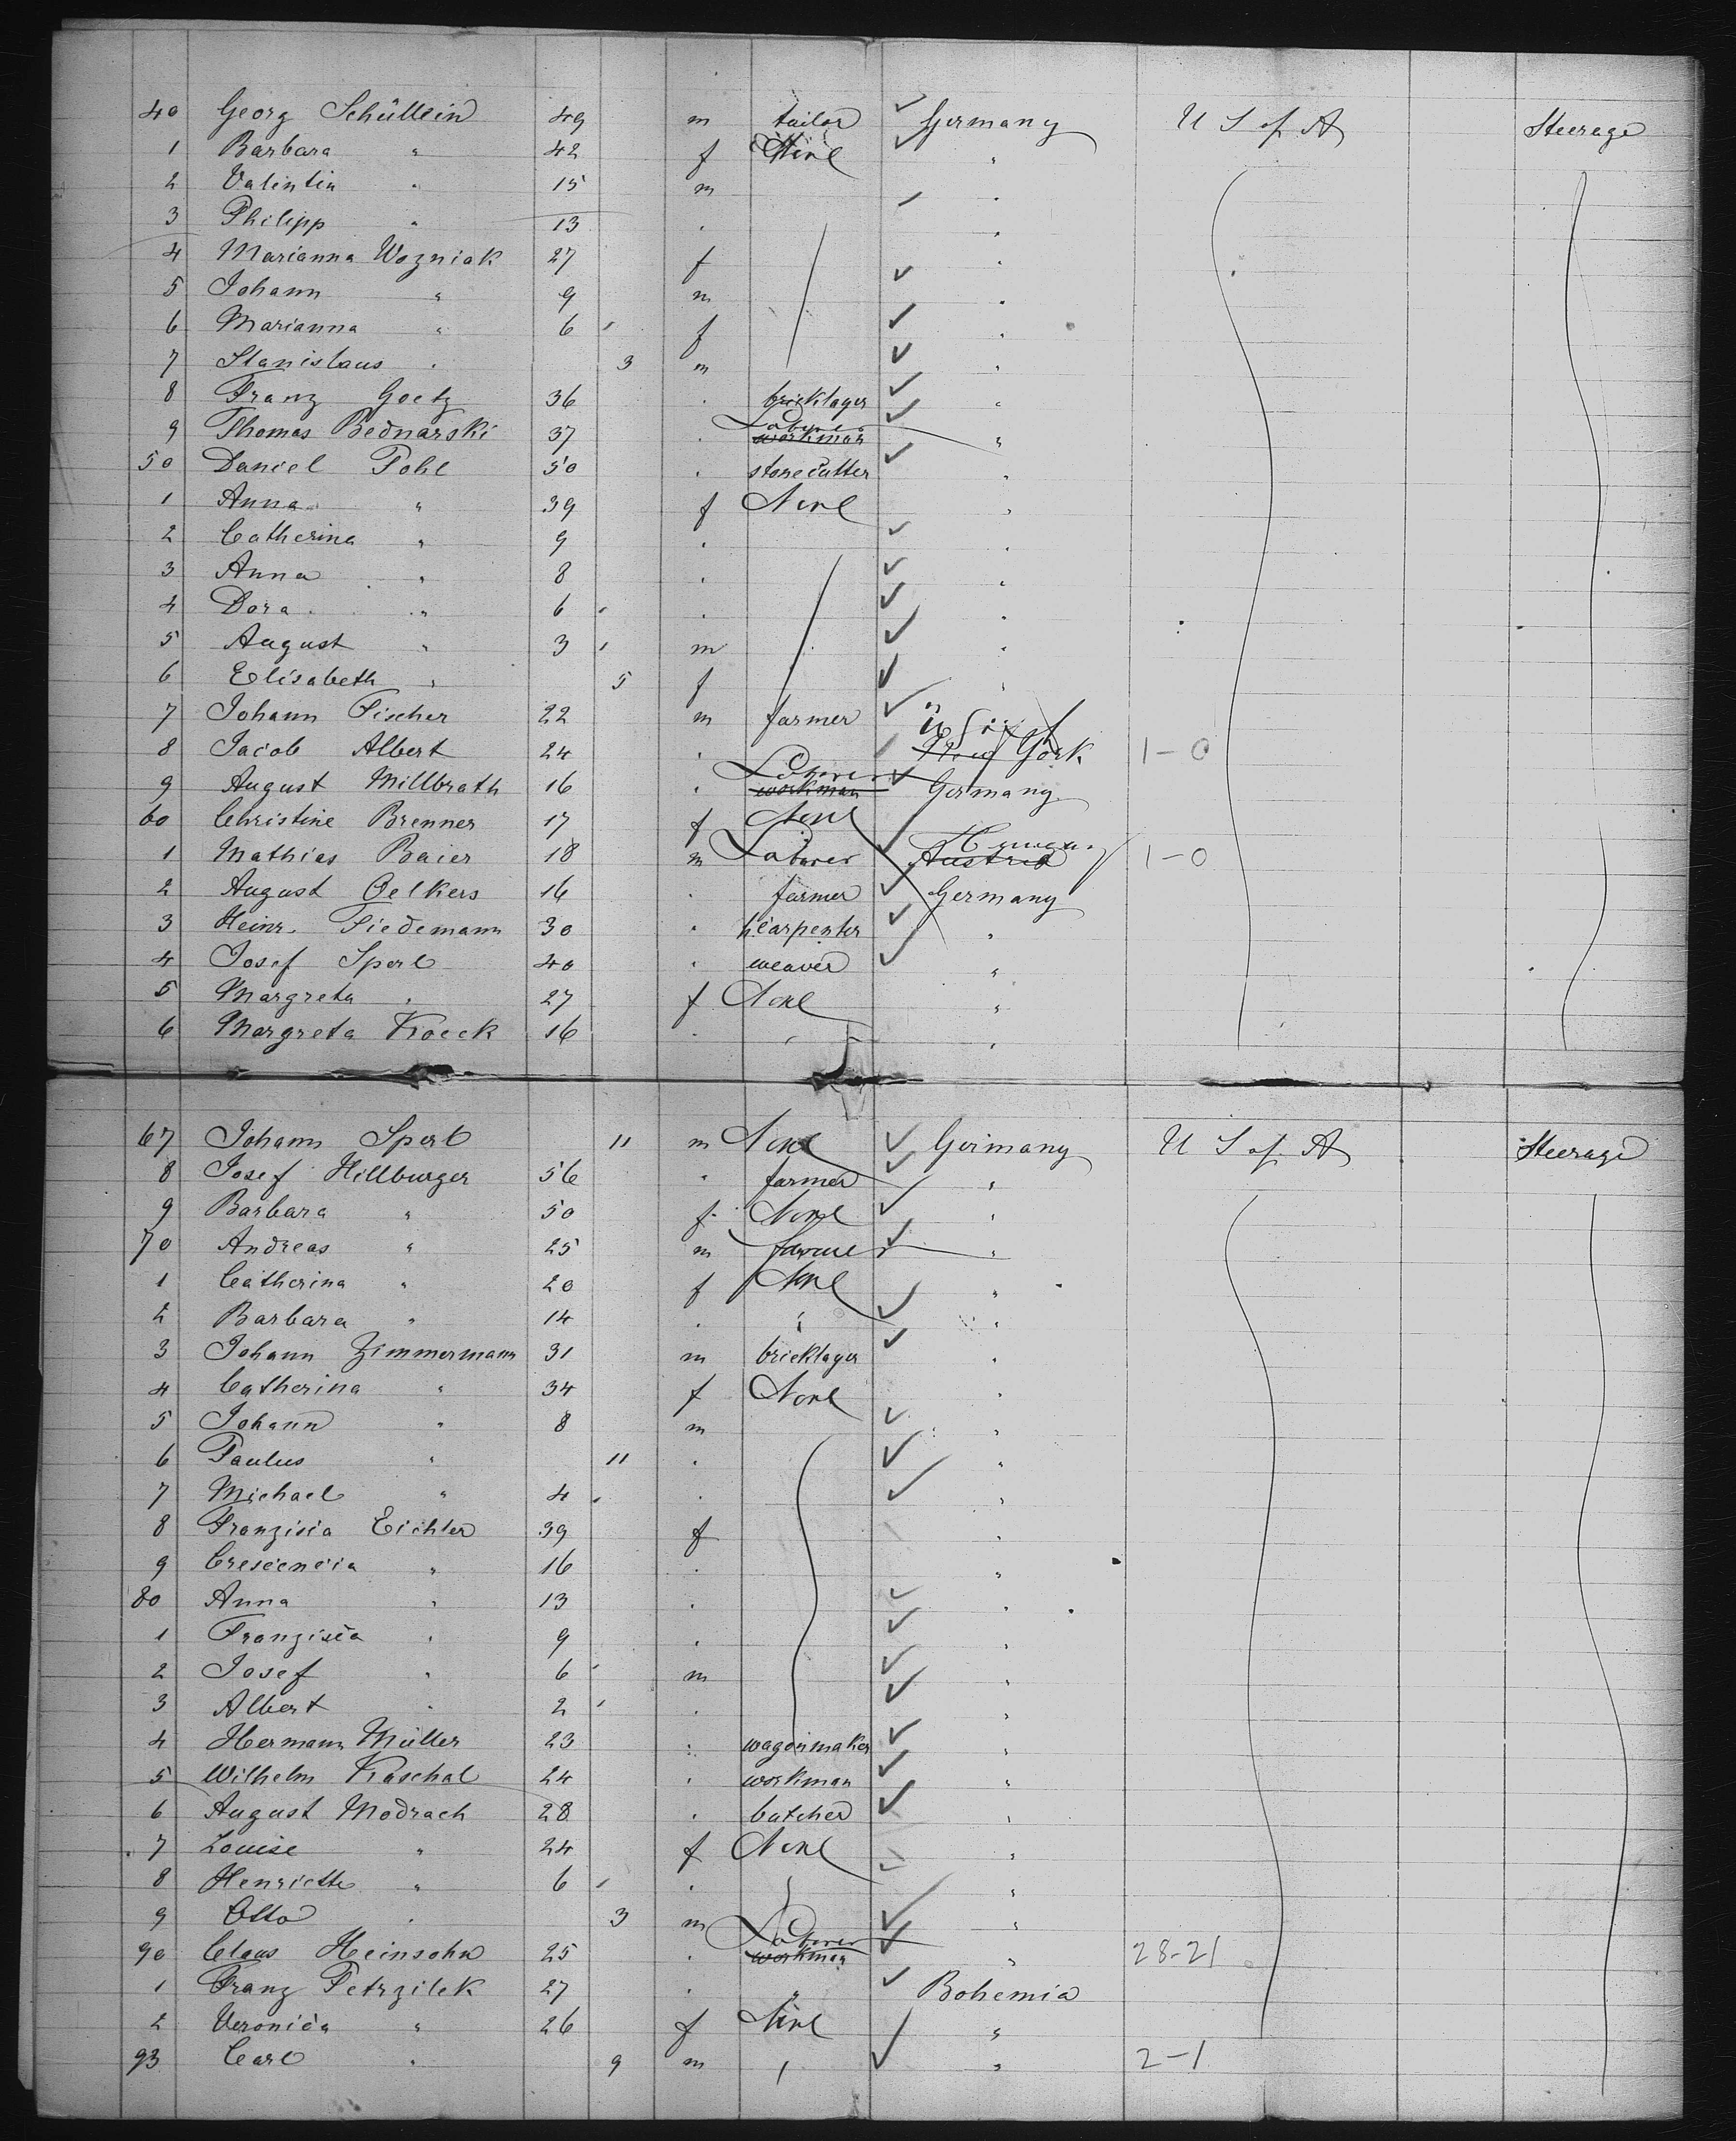 40 Georg Schüllein 49 m tailor ✓ Germany U S of A Steerage
1 Barbara " 42 f None ✓ "
2 Valentin " 15 m "
3 Philipp " 13 " "
4 Marianna Wozniak 27 f "
5 Johann " 9 m ✓ "
6 Marianna " 6 f ✓ "
7 Stanislaus " 3 m ✓ "
8 Franz Goetz 36 " bricklayer ✓ "
9 Thomas Bednarski 37 " Laborer workman ✓ "
50 Daniel Pohl 50 " stonecutter ✓ "
1 Anna " 39 f None "
2 Catherina " 9 " ✓ "
3 Anna " 8 " ✓ "
4 Dora " 6 " ✓ "
5 August " 3 m ✓ "
6 Elisabeth " 5 f ✓ "
7 Johann Fischer 22 m farmer ✓ "
8 Jacob Albert 24 " ✓ New York 1-0
9 August Millbrath 16 " Laborer workman ✓ Germany
60 Christine Brenner 17 f None
1 Mathias Baier 18 m Laborer ✓ Hungary Austria 1-0
2 August Oelkers 16 " farmer ✓ Germany
3 Heinr. Tiedemann 30 " carpenter ✓ "
4 Josef Sperl 40 " weaver ✓ "
5 Margreta " 27 f None "
6 Margreta Kroeck 16 " " "
67 Johann Sperl 11 m None ✓ Germany U S of A Steerage
8 Josef Hillburger 56 " farmer ✓ "
9 Barbara " 50 f None ✓ "
70 Andreas " 25 m farmer ✓ "
1 Catherina " 20 f None "
2 Barbara " 14 " " ✓ "
3 Johann Zimmermann 31 m bricklayer ✓ "
4 Catherina " 34 f None "
5 Johann " 8 m ✓ "
6 Paulus " 11 " ✓ "
7 Michael " 4 " ✓ "
8 Franzisca Eichler 39 f "
9 Crescencia " 16 " "
80 Anna " 13 " ✓ "
1 Franzisca " 9 " ✓ "
2 Josef " 6 m ✓ "
3 Albert " 2 " ✓ "
4 Hermann Müller 23 " wagonmaker ✓ "
5 Wilhelm Kraschal 24 " workman ✓ "
6 August Modrach 28 " butcher ✓ "
7 Louise " 24 f None "
8 Henriette " 6 " ✓ "
9 Otto " 3 m ✓ "
90 Claus Heinsohn 25 " Laborer workman ✓ " 28-21
1 Franz Petrzilek 27 " " ✓ Bohemia
2 Veronica " 26 f None "
93 Carl " 9 m " ✓ " 2-1